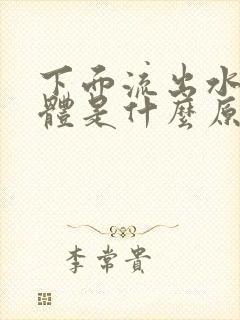 下面流出水
體是什麼原
李常貴